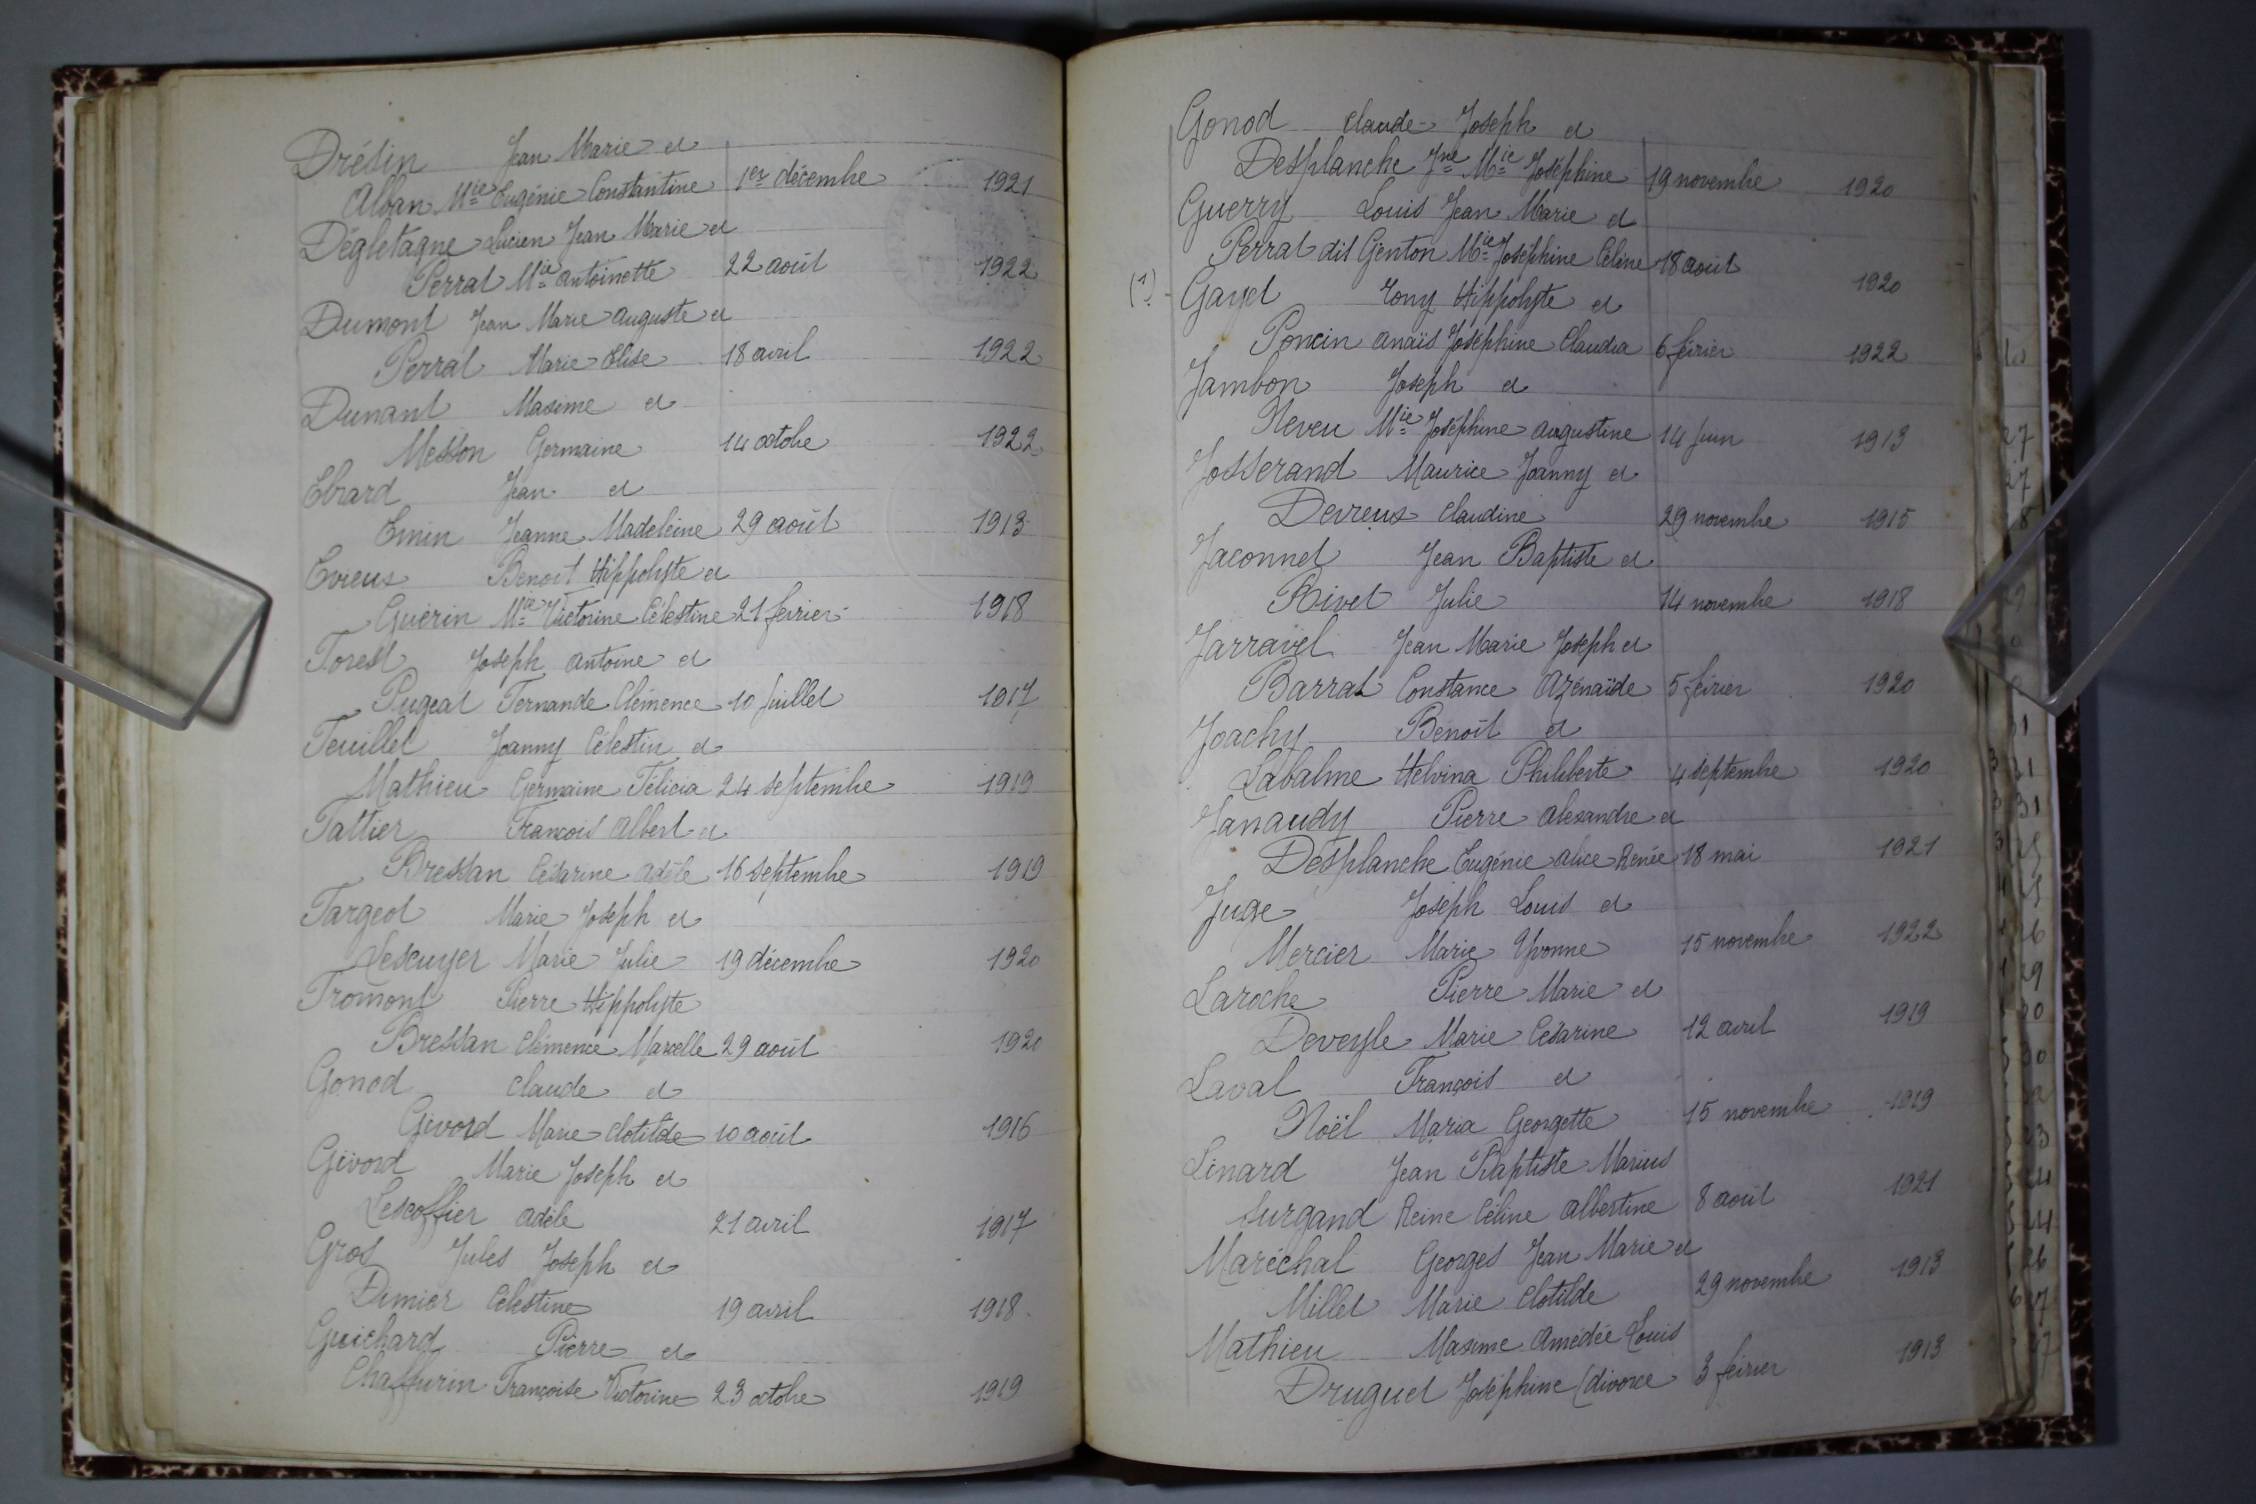 Drésin Jean Marie et
Alban Mie Eugénie Constantine 1er décembre 1921
Dégletagne Lucien Jean Marie et
Perrat Mie Antoinette 22 août 1922
Dumont Jean Marie Auguste et
Perrat Marie Elise 18 avril 1922
Dunant Maxime et
Messon Germaine 14 octobre 1922
Ebrard Jean et
Emin Jeanne Madeleine 29 août 1913
Evieux Benoit Hippolyte et
Guérin Mie Victorine Célestine 21 février 1918
Forest Joseph Antoine et
Pugeat Fernande Clémence 10 juillet 1917
Feuillet Joanny Célestin et
Mathieu Germaine Félicia 24 septembre 1919
Fattier François Albert et
Bressan Césarine Adèle 16 septembre 1919
Fargeot Marie Joseph et
Lescuyer Marie Julie 19 décembre 1920
Fromont Pierre Hippolyte
Bressan Clémence Marcelle 29 août 1920
Gonod Claude et
Givord Marie Clotilde 10 août 1916
Givord Marie Joseph et
Lescoffier Adèle 21 avril 1917
Gros Jules Joseph et
Dimier Célestine 19 avril 1918
Guichard Pierre et
Chaffurin Françoise Victorine 23 octobre 1919
Gonod Claude Joseph et
Desplanche Jne Mie Joséphine 19 novembre 1920
Guerry Louis Jean Marie et
Perrat dit Genton Mie Joséphine Céline 18 août 1920
(1) Gayet Tony Hippolyte et
Poncin Anaïs Joséphine Claudia 6 février 1922
Jambon Joseph et
Neveu Mie Joséphine Augustine 14 juin 1913
Josserand Maurice Joanny et
Devreux Claudine 29 novembre 1915
Jaconnet Jean Baptiste et
Rivet Julie 14 novembre 1918
Jarravel Jean Marie Joseph et
Barrat Constance Azénaïde 5 février 1920
Joachy Benoît et
Labalme Helvina Philiberte 4 septembre 1920
Janaudy Pierre Alexandre et
Desplanche Eugénie Alice Renée 18 mai 1921
Juge Joseph Louis et
Mercier Marie Yvonne 15 novembre 1922
Laroche Pierre Marie et
Deveyle Marie Césarine 12 avril 1919
Laval François et
Noël Maria Georgette 15 novembre 1919
Linard Jean Baptiste Marius
Surgand Reine Céline Albertine 8 août 1921
Maréchal Georges Jean Marie et
Millet Marie Clotilde 29 novembre 1913
Mathieu Maxime Amédée Louis
Druguet Joséphine (divorce 3 février 1913